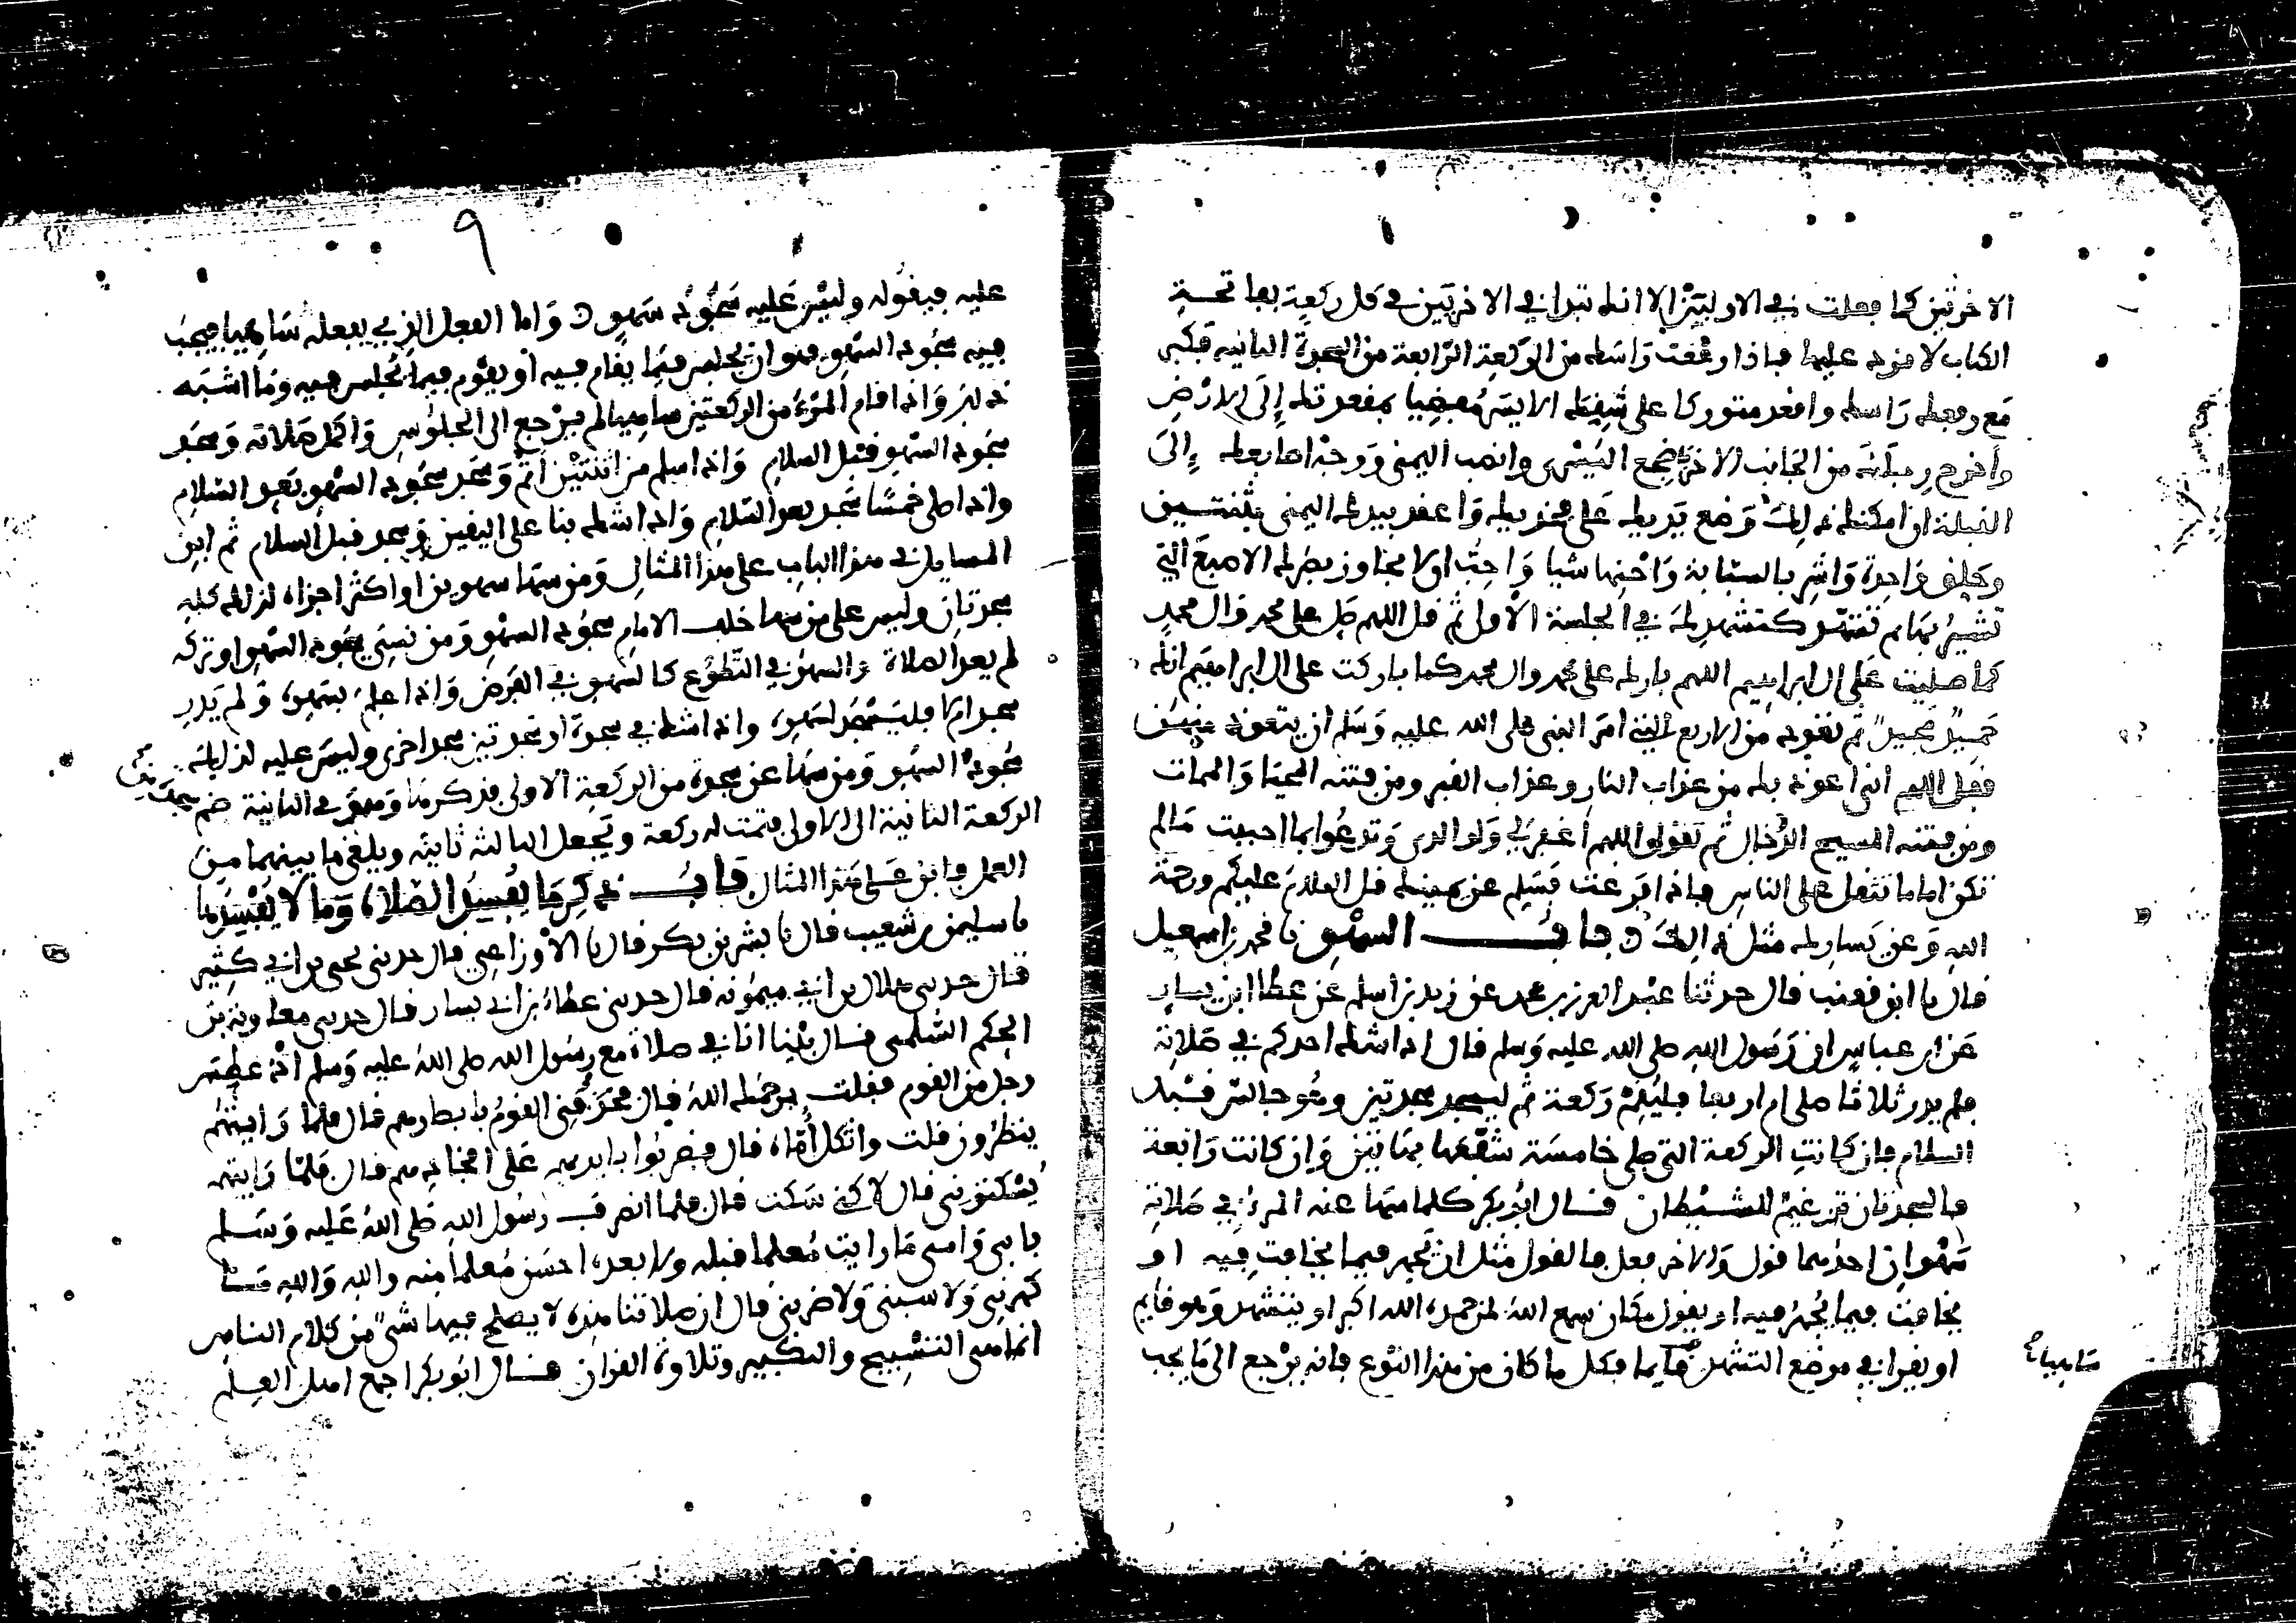 الاخرتين كما فعلت في الاوليين الا انك تبدا في الاخرتين في كل ركعة بفاتحة
الكتاب لا فزد عليها فاذا رفعت راسك من الركعة الرابعة من السجدة الثانية فكبر
مع رفعك راسك واقعد متوركا على شقك الايسر مفضيا بمقعدتك إلى الارض
واخرج رجليك من الجانب الاخر ضجع اليسرى وانصب اليمنى ووجه اصابعك إلى
القبلة ان امكنك ذلك وضع يديك على فخذيك واعقد بيدك اليمنى ثنتين
وحلق واحدة واشر بالسبابة واحنها شيا واحب ان لا يجاوز بصرك الاصبع التي
تشير بها ثم تتشهد كتشهدك في الجلسة الاولى ثم قل اللهم صل على محمد وال محمد
كما صليت على ال ابراهيم اللهم بارك على محمد وال محمد كما باركت على ال ابراهيم انك
حميد مجيد ثم تعوذ من الاربع التي امر النبي صلى الله عليه وسلم ان يتعوذ منهن
فقل اللهم اني اعوذ بك من عذاب النار وعذاب القبر ومن فتنة المحيا والممات
ومن فتنة المسيح الدجال ثم تقول اللهم اغفر لي ولوالدي وتدعوا بما احببت مالم
تكن اماما تثقل على الناس فاذا فرغت فسلم عن يمينك قل السلام عليكم ورحمة
الله وعن يسارك مثل ذلك باب السهو نا محمد بن اسمعيل
قال نا ابو قعنب قال حدثنا عبد العزيز بن محمد عن زيد بن اسلم عن عطا ابن يسار
عن ابن عباس ان رسول الله صلى الله عليه وسلم قال اذا شك احدكم في صلاته
فلم يدر ثلاثا صلى ام اربعا فليتم ركعة ثم ليسجد سجدتين وهو جالس قبل
السلام فان كانت الركعة التي صلى خامسة شفعها بهاتين وان كانت رابعة
فالسجدتان ترغيم للشيطان قال ابو بكر كلما سها عنه المرء في صلاته
سهوان احدهما قول والاخر فعل فالقول مثل ان يجهر فيما يخافت فيه او
يخافت فيما يجهر فيه او يقول مكان سمع الله لمن حمده الله اكبر او يتشهد وهو قايم
او يقرا في موضع التشهد قايما فكل ما كان من هذا النوع فانه يرجع الى ما يجب
ساهيا
٩
عليه فيقوله وليس عليه سجود سهو واما الفعل الذي يفعله ساهيا فيجب
فيه سجود السهو فهو ان يجلس فيما يقام فيه او يقوم فيما يجلس فيه وما اشبه
ذلك واذا قام المرء من الركعتين ساهيا لم يرجع الى الجلوس واكمل صلاته وسجد
سجود السهو قبل السلام واذا سلم من اثنتين اتم وسجد سجود السهو بعد السلام
واذا صلى خمسا سجد بعد السلام واذا شك بنا على اليقين وسجد قبل السلام ثم ابن
المسايل في هذا الباب على هذا المثال ومن سها سهوين او اكثر اجزاه لذلك كله
سجدتان وليس على من سها خلف الامام سجود السهو ومن نسي سجود السهو او تركه
لم يعد الصلاة والسهو في التطوع كالسهو في الفرض واذا علم بسهو ولم يدر
سجد ام لا فليسجد لسهوه واذا شك في سجدة او سجدتين سجد اخرى وليس عليه لذلك
سجود السهو ومن سها عن سجدة من الركعة الاولى فذكرها وهو في الثانية ضم
الركعة الثانية الى الاولى فتمت له ركعة ويجعل الثالثة ثانية ويلغي ما بينهما من
العمل فابن على هذا المثال باب ذكر ما يفسد الصلاة وما لا يفسدها
نا سليمن بن شعيب قال نا بشر بن بكر قال نا الاوزاعي قال حدثني يحيى بن ابي كثير
قال حدثني هلال بن ابي ميمونه قال حدثني عطاء بن ابي يسار قال حدثني معاوية بن
الحكم السلمي قال بينا انا في صلاة مع رسول الله صلى الله عليه وسلم اذ عطس
رجل من القوم فقلت يرحمك الله قال فحدقني القوم بابصارهم قال فلما رايتهم
ينظرون قلت واثكل اماه قال فضربوا بايديهم على افخاذهم قال فلما رايتهم
يسكتونني قال لاكني سكت قال فلما انصرف رسول الله صلى الله عليه وسلم
بابي وامي ما رايت معلما قبله ولا بعده احسن معلما منه والله والله ما
كهرني ولا سبني ولا ضربني قال ان صلاتنا هذه لا يصلح فيها شي من كلام الناس
انما هي التسبيح والتكبير وتلاوة القران قال ابو بكر اجمع اهل العلم